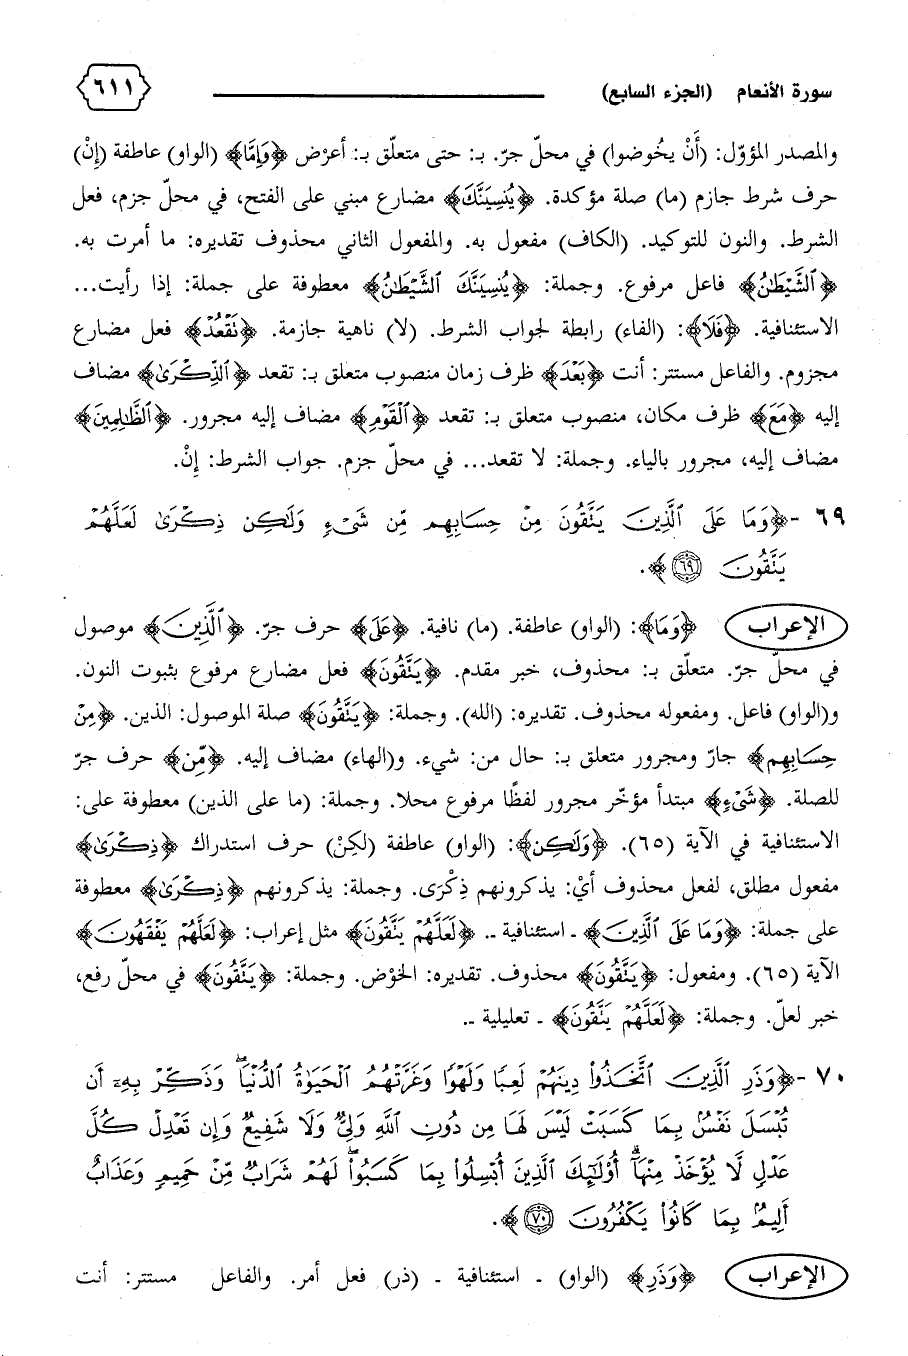 سورة الأنعام (الجزء السابع) ٦١١
والمصدر المؤوّل: (أَنْ يخُوضوا) في محلّ جرّ. بـ: حتى متعلّق بـ: أعرْض ﴿وَإِمَّا﴾ (الواو) عاطفة (إنْ)
حرف شرط جازم (ما) صلة مؤكدة. ﴿يُنسِيَنَّكَ﴾ مضارع مبني على الفتح، في محلّ جزم، فعل
الشرط. والنون للتوكيد. (الكاف) مفعول به. والمفعول الثاني محذوف تقديره: ما أمرت به.
﴿ٱلشَّيْطَٰنُ﴾ فاعل مرفوع. وجملة: ﴿يُنسِيَنَّكَ ٱلشَّيْطَٰنُ﴾ معطوفة على جملة: إذا رأيت...
الاستئنافية. ﴿فَلَا﴾: (الفاء) رابطة لجواب الشرط. (لا) ناهية جازمة. ﴿تَقْعُدْ﴾ فعل مضارع
مجزوم. والفاعل مستتر: أنت ﴿بَعْدَ﴾ ظرف زمان منصوب متعلق بـ: تقعد ﴿ٱلذِّكْرَىٰ﴾ مضاف
إليه ﴿مَعَ﴾ ظرف مكان، منصوب متعلق بـ: تقعد ﴿ٱلْقَوْمِ﴾ مضاف إليه مجرور. ﴿ٱلظَّٰلِمِينَ﴾
مضاف إليه، مجرور بالياء. وجملة: لا تقعد... في محلّ جزم. جواب الشرط: إنْ.
٦٩ -﴿وَمَا عَلَى ٱلَّذِينَ يَتَّقُونَ مِنْ حِسَابِهِم مِّن شَىْءٍ وَلَٰكِن ذِكْرَىٰ لَعَلَّهُمْ
يَتَّقُونَ ٦٩﴾.
الإعراب ﴿وَمَا﴾: (الواو) عاطفة. (ما) نافية. ﴿عَلَى﴾ حرف جرّ. ﴿ٱلَّذِينَ﴾ موصول
في محلّ جرّ. متعلّق بـ: محذوف، خبر مقدم. ﴿يَتَّقُونَ﴾ فعل مضارع مرفوع بثبوت النون.
و(الواو) فاعل. ومفعوله محذوف. تقديره: (الله). وجملة: ﴿يَتَّقُونَ﴾ صلة الموصول: الذين. ﴿مِنْ
حِسَابِهِم﴾ جارّ ومجرور متعلق بـ: حال من: شيء. و(الهاء) مضاف إليه. ﴿مِّن﴾ حرف جرّ
للصلة. ﴿شَىْءٍ﴾ مبتدأ مؤخّر مجرور لفظًا مرفوع محلا. وجملة: (ما على الذين) معطوفة على:
الاستئنافية في الآية (٦٥). ﴿وَلَٰكِن﴾: (الواو) عاطفة (لكِنْ) حرف استدراك ﴿ذِكْرَىٰ﴾
مفعول مطلق، لفعل محذوف أيْ: يذكرونهم ذِكْرَى. وجملة: يذكرونهم ﴿ذِكْرَىٰ﴾ معطوفة
على جملة: ﴿وَمَا عَلَى ٱلَّذِينَ﴾ ـ استئنافية ـ. ﴿لَعَلَّهُمْ يَتَّقُونَ﴾ مثل إعراب: ﴿لَعَلَّهُمْ يَفْقَهُونَ﴾
الآية (٦٥). ومفعول: ﴿يَتَّقُونَ﴾ محذوف. تقديره: الخوْض. وجملة: ﴿يَتَّقُونَ﴾ في محلّ رفع،
خبر لعلّ. وجملة: ﴿لَعَلَّهُمْ يَتَّقُونَ﴾ ـ تعليلية ـ.
٧٠ -﴿وَذَرِ ٱلَّذِينَ ٱتَّخَذُوا۟ دِينَهُمْ لَعِبًا وَلَهْوًا وَغَرَّتْهُمُ ٱلْحَيَوٰةُ ٱلدُّنْيَا ۖ وَذَكِّرْ بِهِۦٓ أَن
تُبْسَلَ نَفْسٌۢ بِمَا كَسَبَتْ لَيْسَ لَهَا مِن دُونِ ٱللَّهِ وَلِىٌّ وَلَا شَفِيعٌ وَإِن تَعْدِلْ كُلَّ
عَدْلٍ لَّا يُؤْخَذْ مِنْهَآ ۗ أُو۟لَٰٓئِكَ ٱلَّذِينَ أُبْسِلُوا۟ بِمَا كَسَبُوا۟ ۖ لَهُمْ شَرَابٌ مِّنْ حَمِيمٍ وَعَذَابٌ
أَلِيمٌۢ بِمَا كَانُوا۟ يَكْفُرُونَ ٧٠﴾.
الإعراب ﴿وَذَرِ﴾ (الواو) ـ استئنافية ـ (ذر) فعل أمر. والفاعل مستتر: أنت